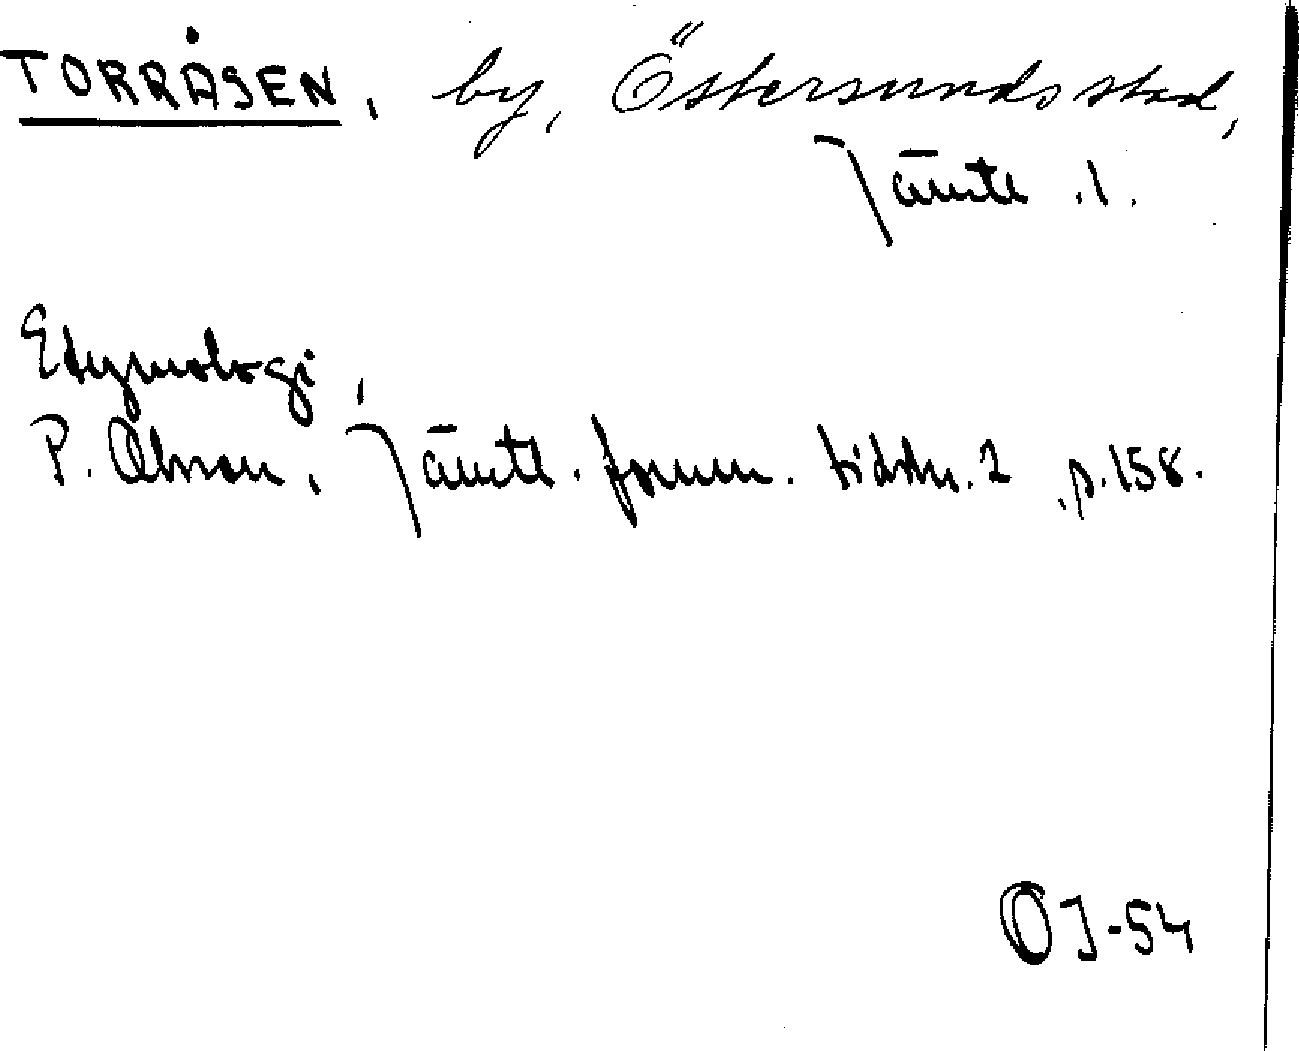 TORRÅSEN, by, Östersunds stad,
Jämtl .l.
Etymologi,
P. Olsson, Jämtl. fornm. tidskr. 2, p. 158.
OJ-54